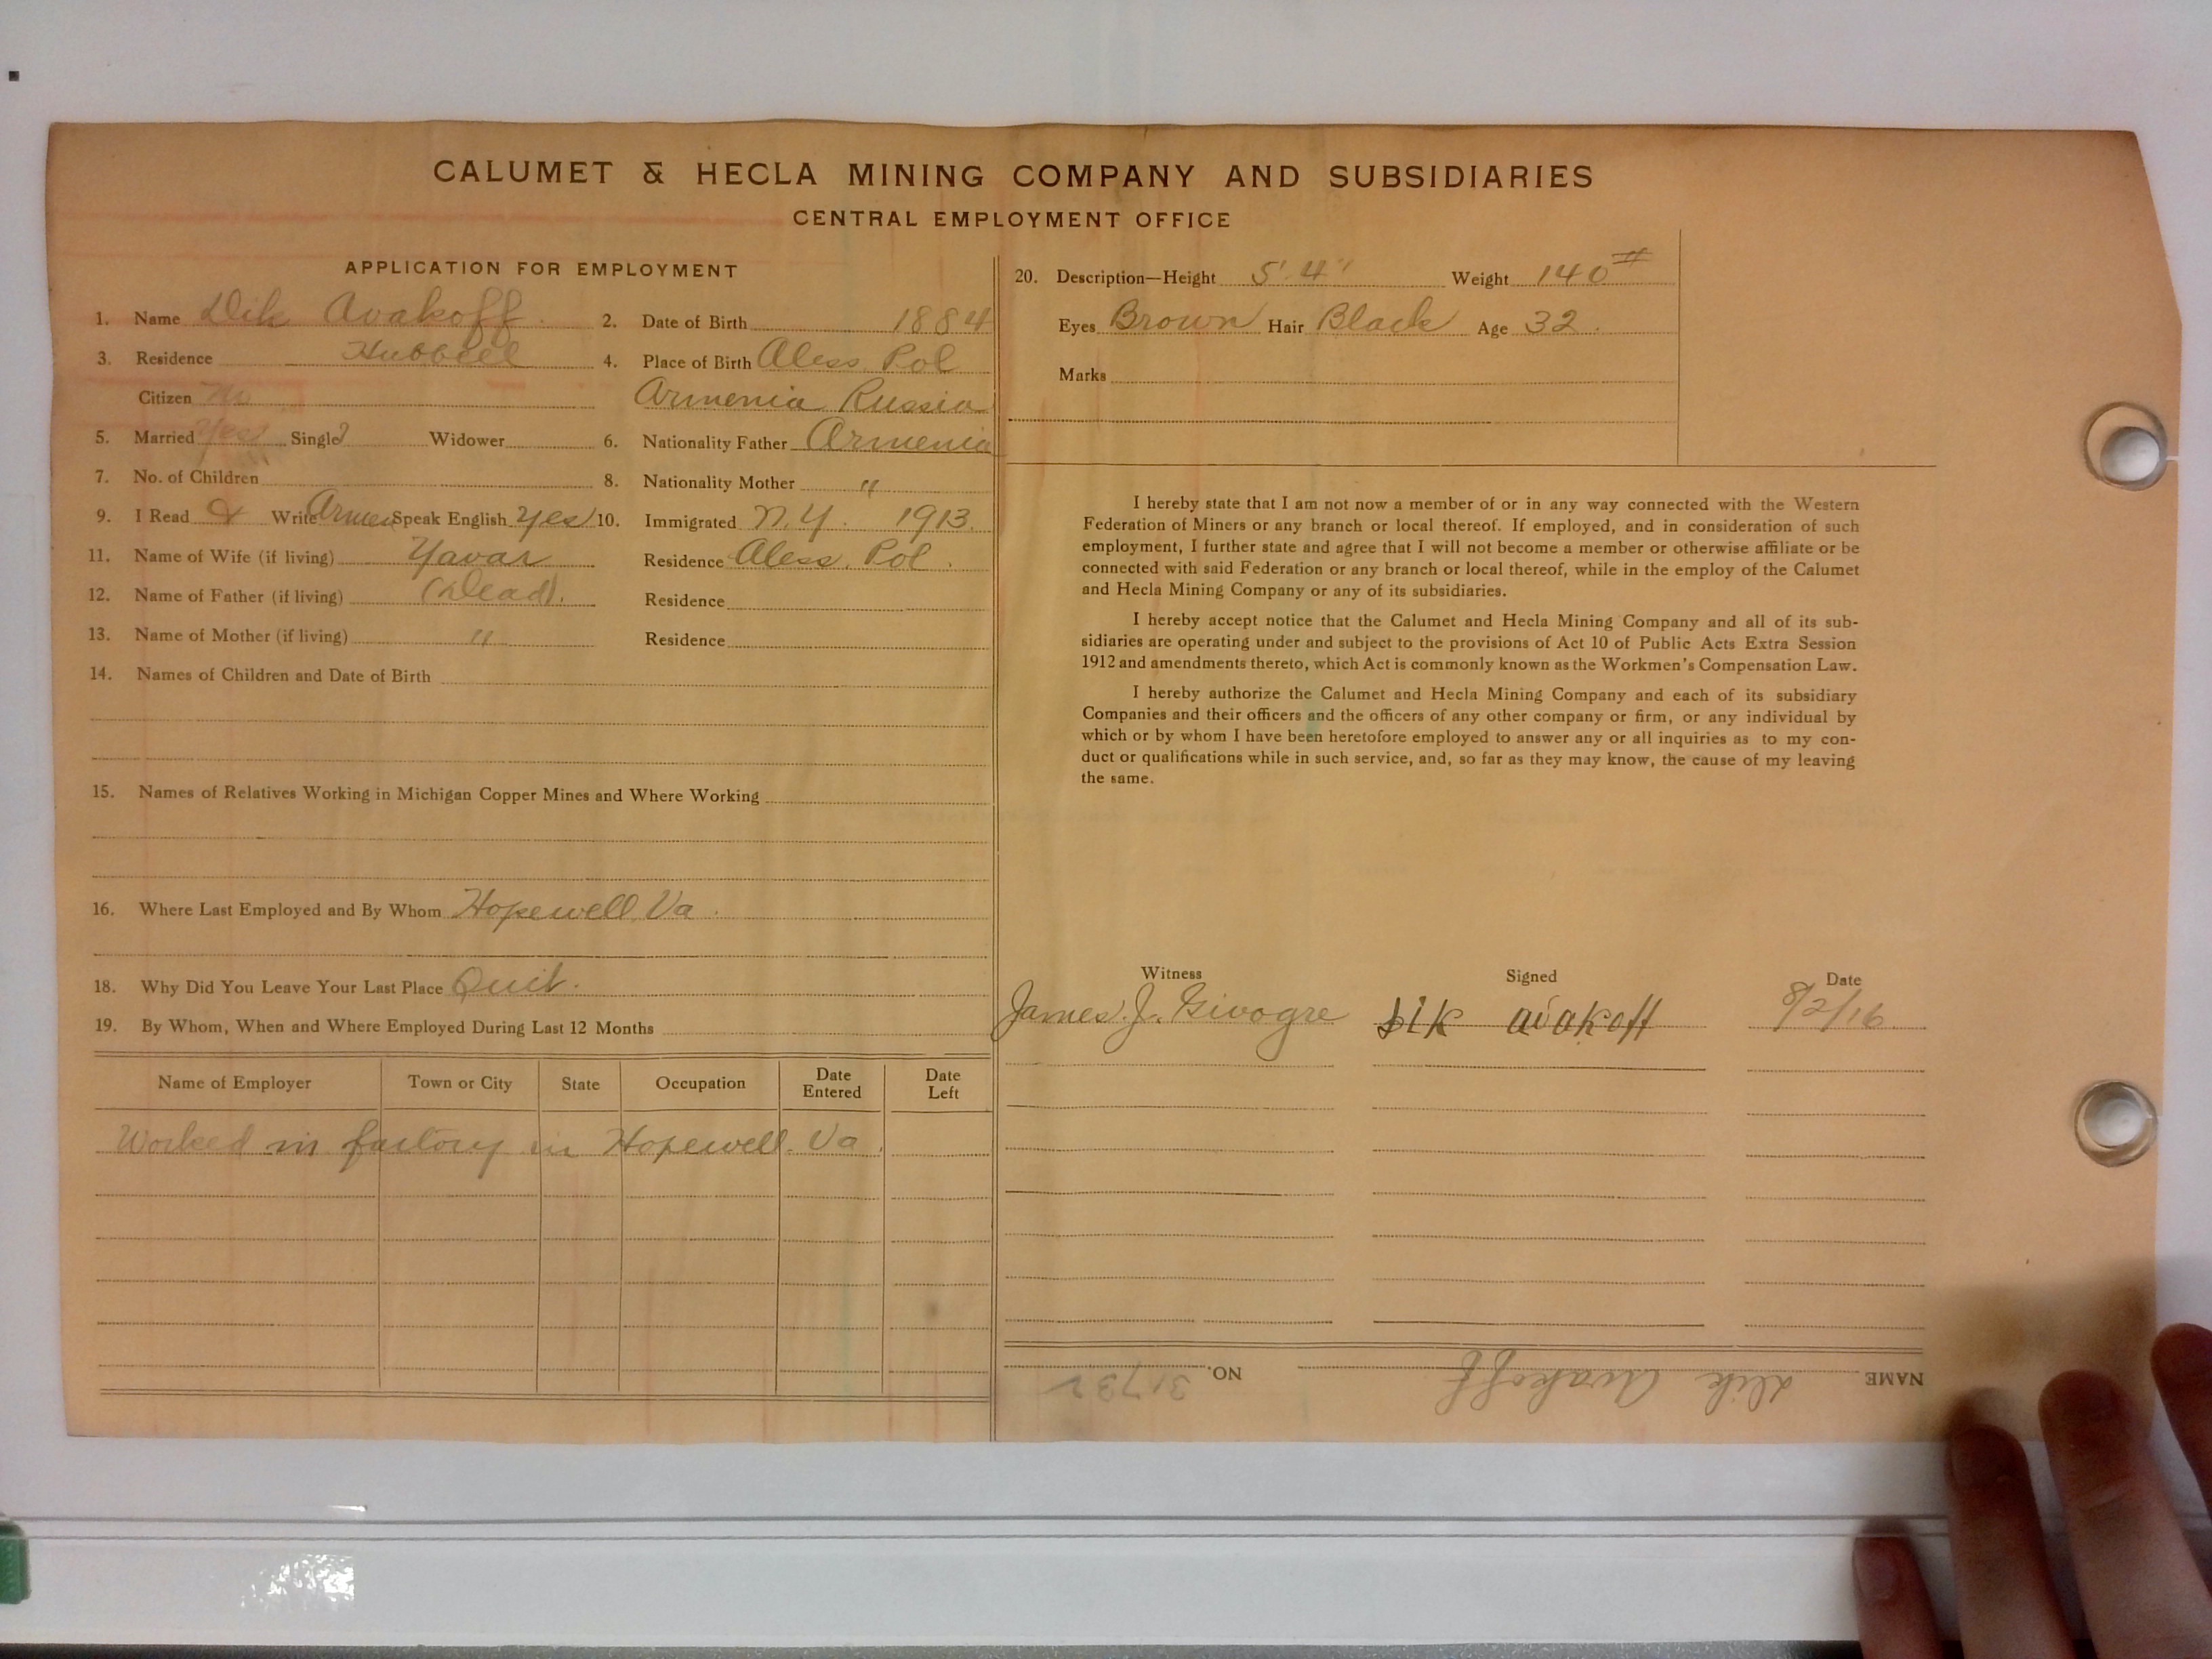 CALUMET & HECLA MINING COMPANY AND SUBSIDIARIES
CENTRAL EMPLOYMENT OFFICE
APPLICATION FOR EMPLOYMENT
1. Name Dik Avakoff 2. Date of Birth 1884
3. Residence Hubbell 4. Place of Birth Aless. Pol
Citizen No Armenia Russia
5. Married Yes Single? Widower 6. Nationality Father Armenia
7. No. of Children 8. Nationality Mother "
9. I Read & Write Armen Speak English Yes 10. Immigrated N.Y. 1913
11. Name of Wife (if living) Yavar Residence Aless. Pol.
12. Name of Father (if living) (Dead). Residence
13. Name of Mother (if living) " Residence
14. Names of Children and Date of Birth
15. Names of Relatives Working in Michigan Copper Mines and Where Working
16. Where Last Employed and By Whom Hopewell, Va.
18. Why Did You Leave Your Last Place Quit.
19. By Whom, When and Where Employed During Last 12 Months
Name of Employer Town or City State Occupation Date Entered Date Left
Worked in factory in Hopewell. Va.
20. Description—Height 5' 4" Weight 140#
Eyes Brown Hair Black Age 32.
Marks
I hereby state that I am not now a member of or in any way connected with the Western
Federation of Miners or any branch or local thereof. If employed, and in consideration of such
employment, I further state and agree that I will not become a member or otherwise affiliate or be
connected with said Federation or any branch or local thereof, while in the employ of the Calumet
and Hecla Mining Company or any of its subsidiaries.
I hereby accept notice that the Calumet and Hecla Mining Company and all of its sub-
sidiaries are operating under and subject to the provisions of Act 10 of Public Acts Extra Session
1912 and amendments thereto, which Act is commonly known as the Workmen's Compensation Law.
I hereby authorize the Calumet and Hecla Mining Company and each of its subsidiary
Companies and their officers and the officers of any other company or firm, or any individual by
which or by whom I have been heretofore employed to answer any or all inquiries as to my con-
duct or qualifications while in such service, and, so far as they may know, the cause of my leaving
the same.
Witness Signed Date
James J. Givogre Dik avakoff 8/2/16
NAME Dik Avakoff NO. 31732